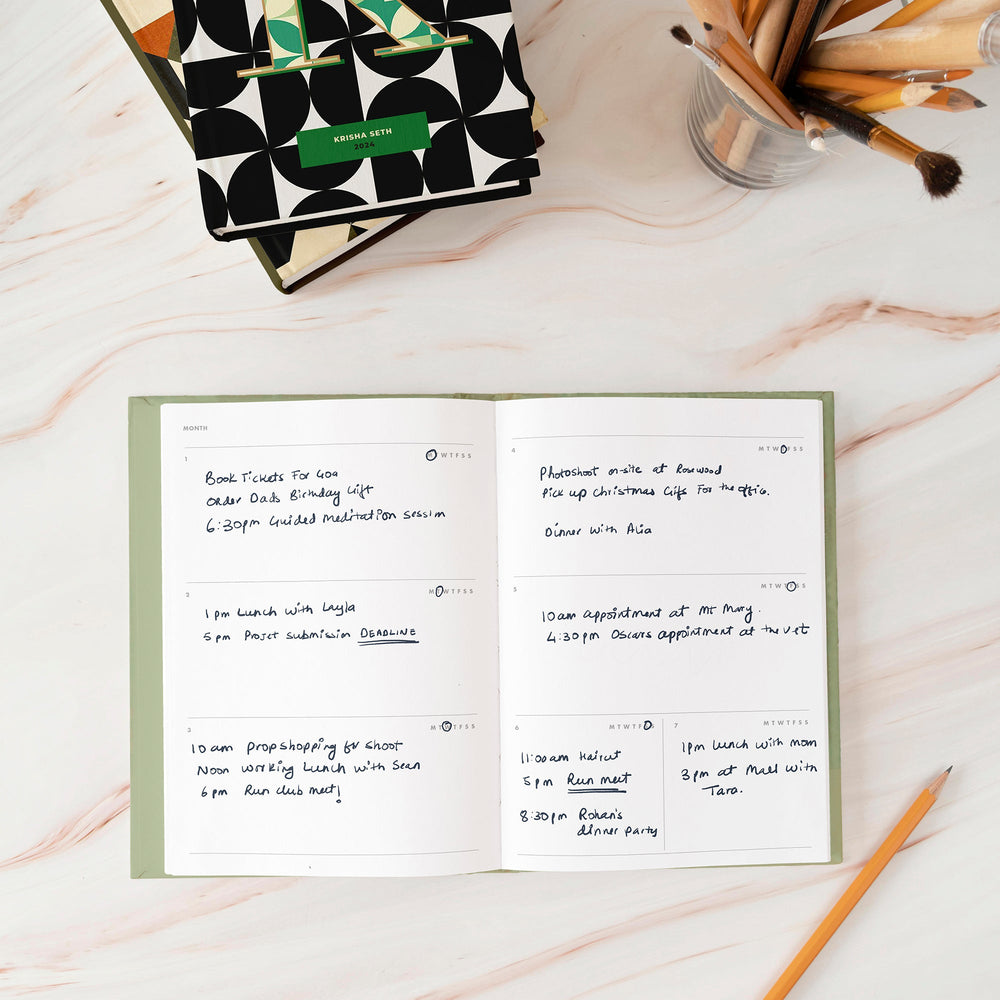 R
KRISHA SETH
2024
MONTH
1
M T W T F S S
Book Tickets For Goa
Order Dads Birthday Gift
6:30pm Guided Meditation session
2
M T W T F S S
1 pm Lunch with Layla
5 pm Projet submission DEADLINE
3
M T W T F S S
10 am Prop shopping for shoot
Noon working Lunch with Sean
6 pm Run club meet!
4
M T W T F S S
Photoshoot on-site at Rosewood
Pick up Christmas Gifs For the office.
Dinner with Alia
5
M T W T F S S
10 am appointment at Mt Mary.
4:30 pm Oscars appointment at the vet
6
M T W T F S S
11:00 am Haircut
5 pm Run meet
8:30 pm Rohan's
dinner party
7
M T W T F S S
1pm lunch with mom
3 pm at Mall with
Tara.